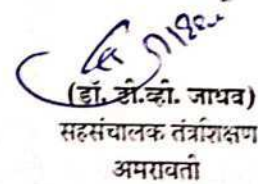 (डॉ. डी.व्ही. जाधव)
सहसंचालक तंत्रशिक्षण
अमरावती